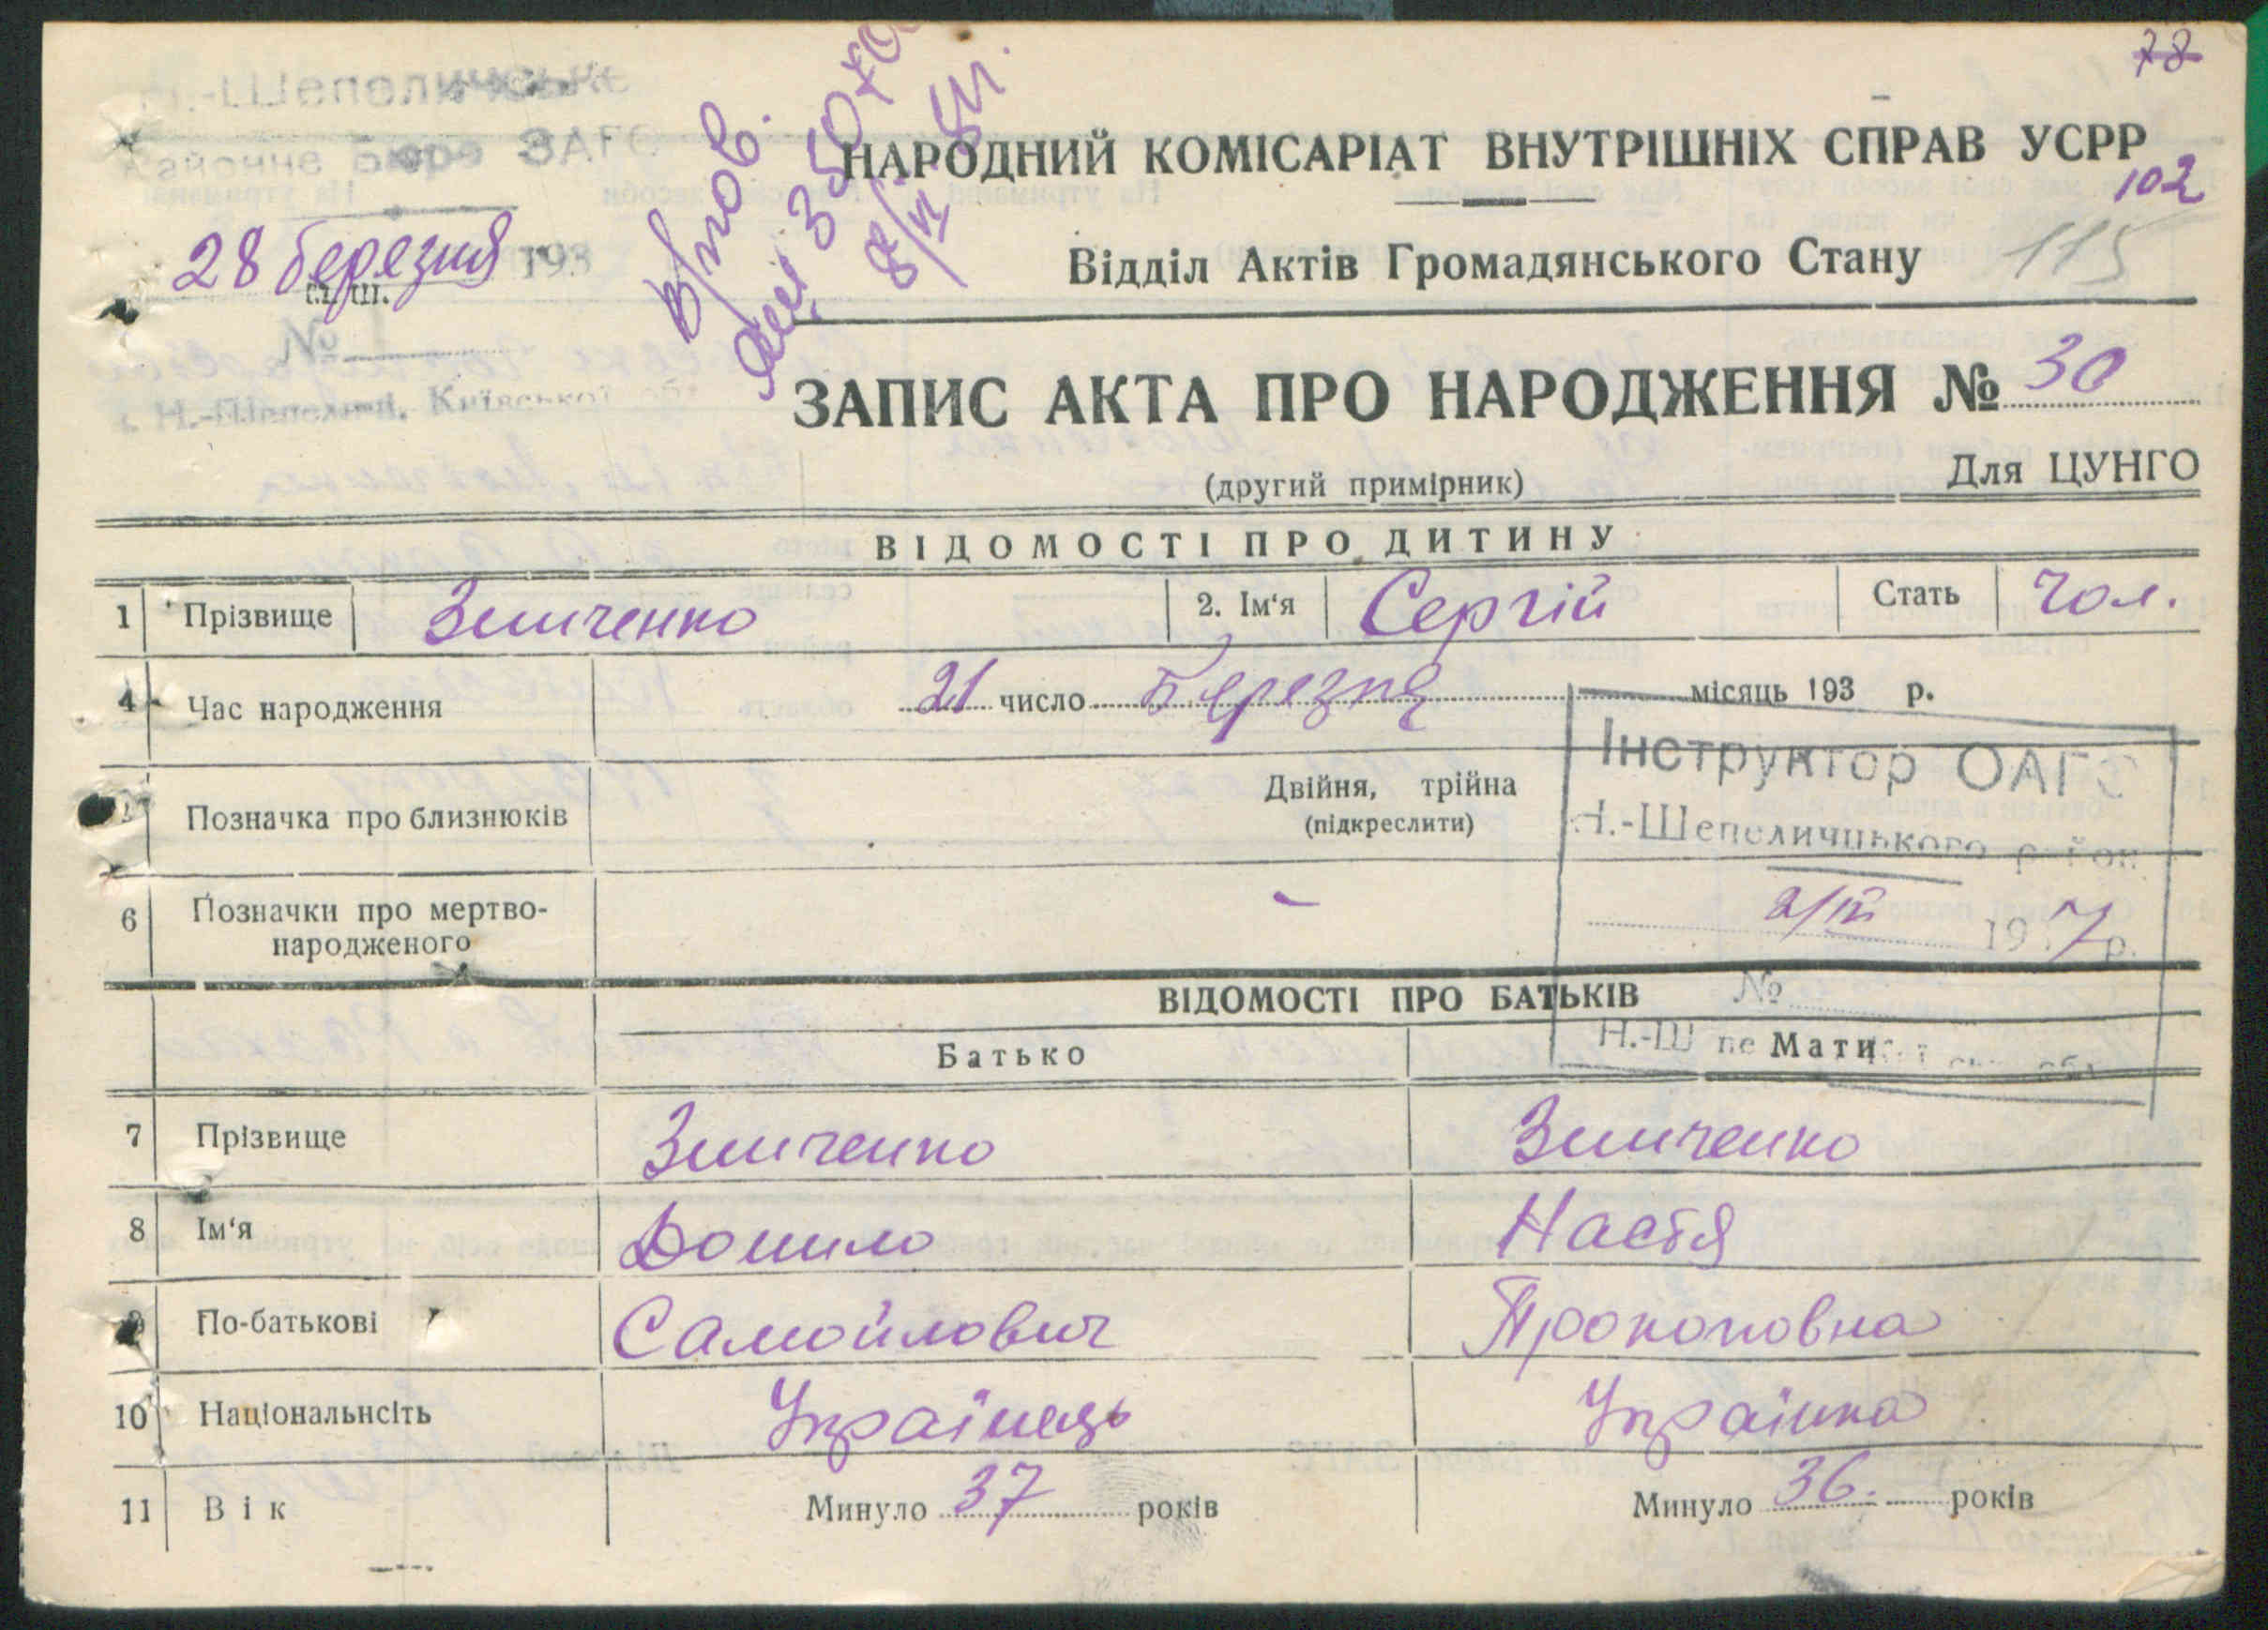 78
Н.-Шепеличське
Районне Бюро ЗАГС
28 березня 193
№
с. Н.-Шепеличі, Київської обл.
В/пов.
НАРОДНИЙ КОМІСАРІАТ ВНУТРІШНІХ СПРАВ УСРР
102
Відділ Актів Громадянського Стану 115
ЗАПИС АКТА ПРО НАРОДЖЕННЯ № 30
(другий примірник) Для ЦУНГО
ВІДОМОСТІ ПРО ДИТИНУ
1 Прізвище Зинченко 2. Ім‘я Сергій Стать Чол.
4 Час народження 21 число Березня місяць 193 р.
Інструктор ОАГС
Н.-Шепеличцького район
Позначка про близнюків Двійня, трійна
(підкреслити)
6 Позначки про мертво-
народженого -
2/IV 1937 р.
№
ВІДОМОСТІ ПРО БАТЬКІВ
Батько Мати
7 Прізвище Зинченко Зинченко
8 Ім‘я Данило Настя
9 По-батькові Самойлович Прокоповна
10 Національнсіть Українець Українка
11 Вік Минуло 37 років Минуло 36. років